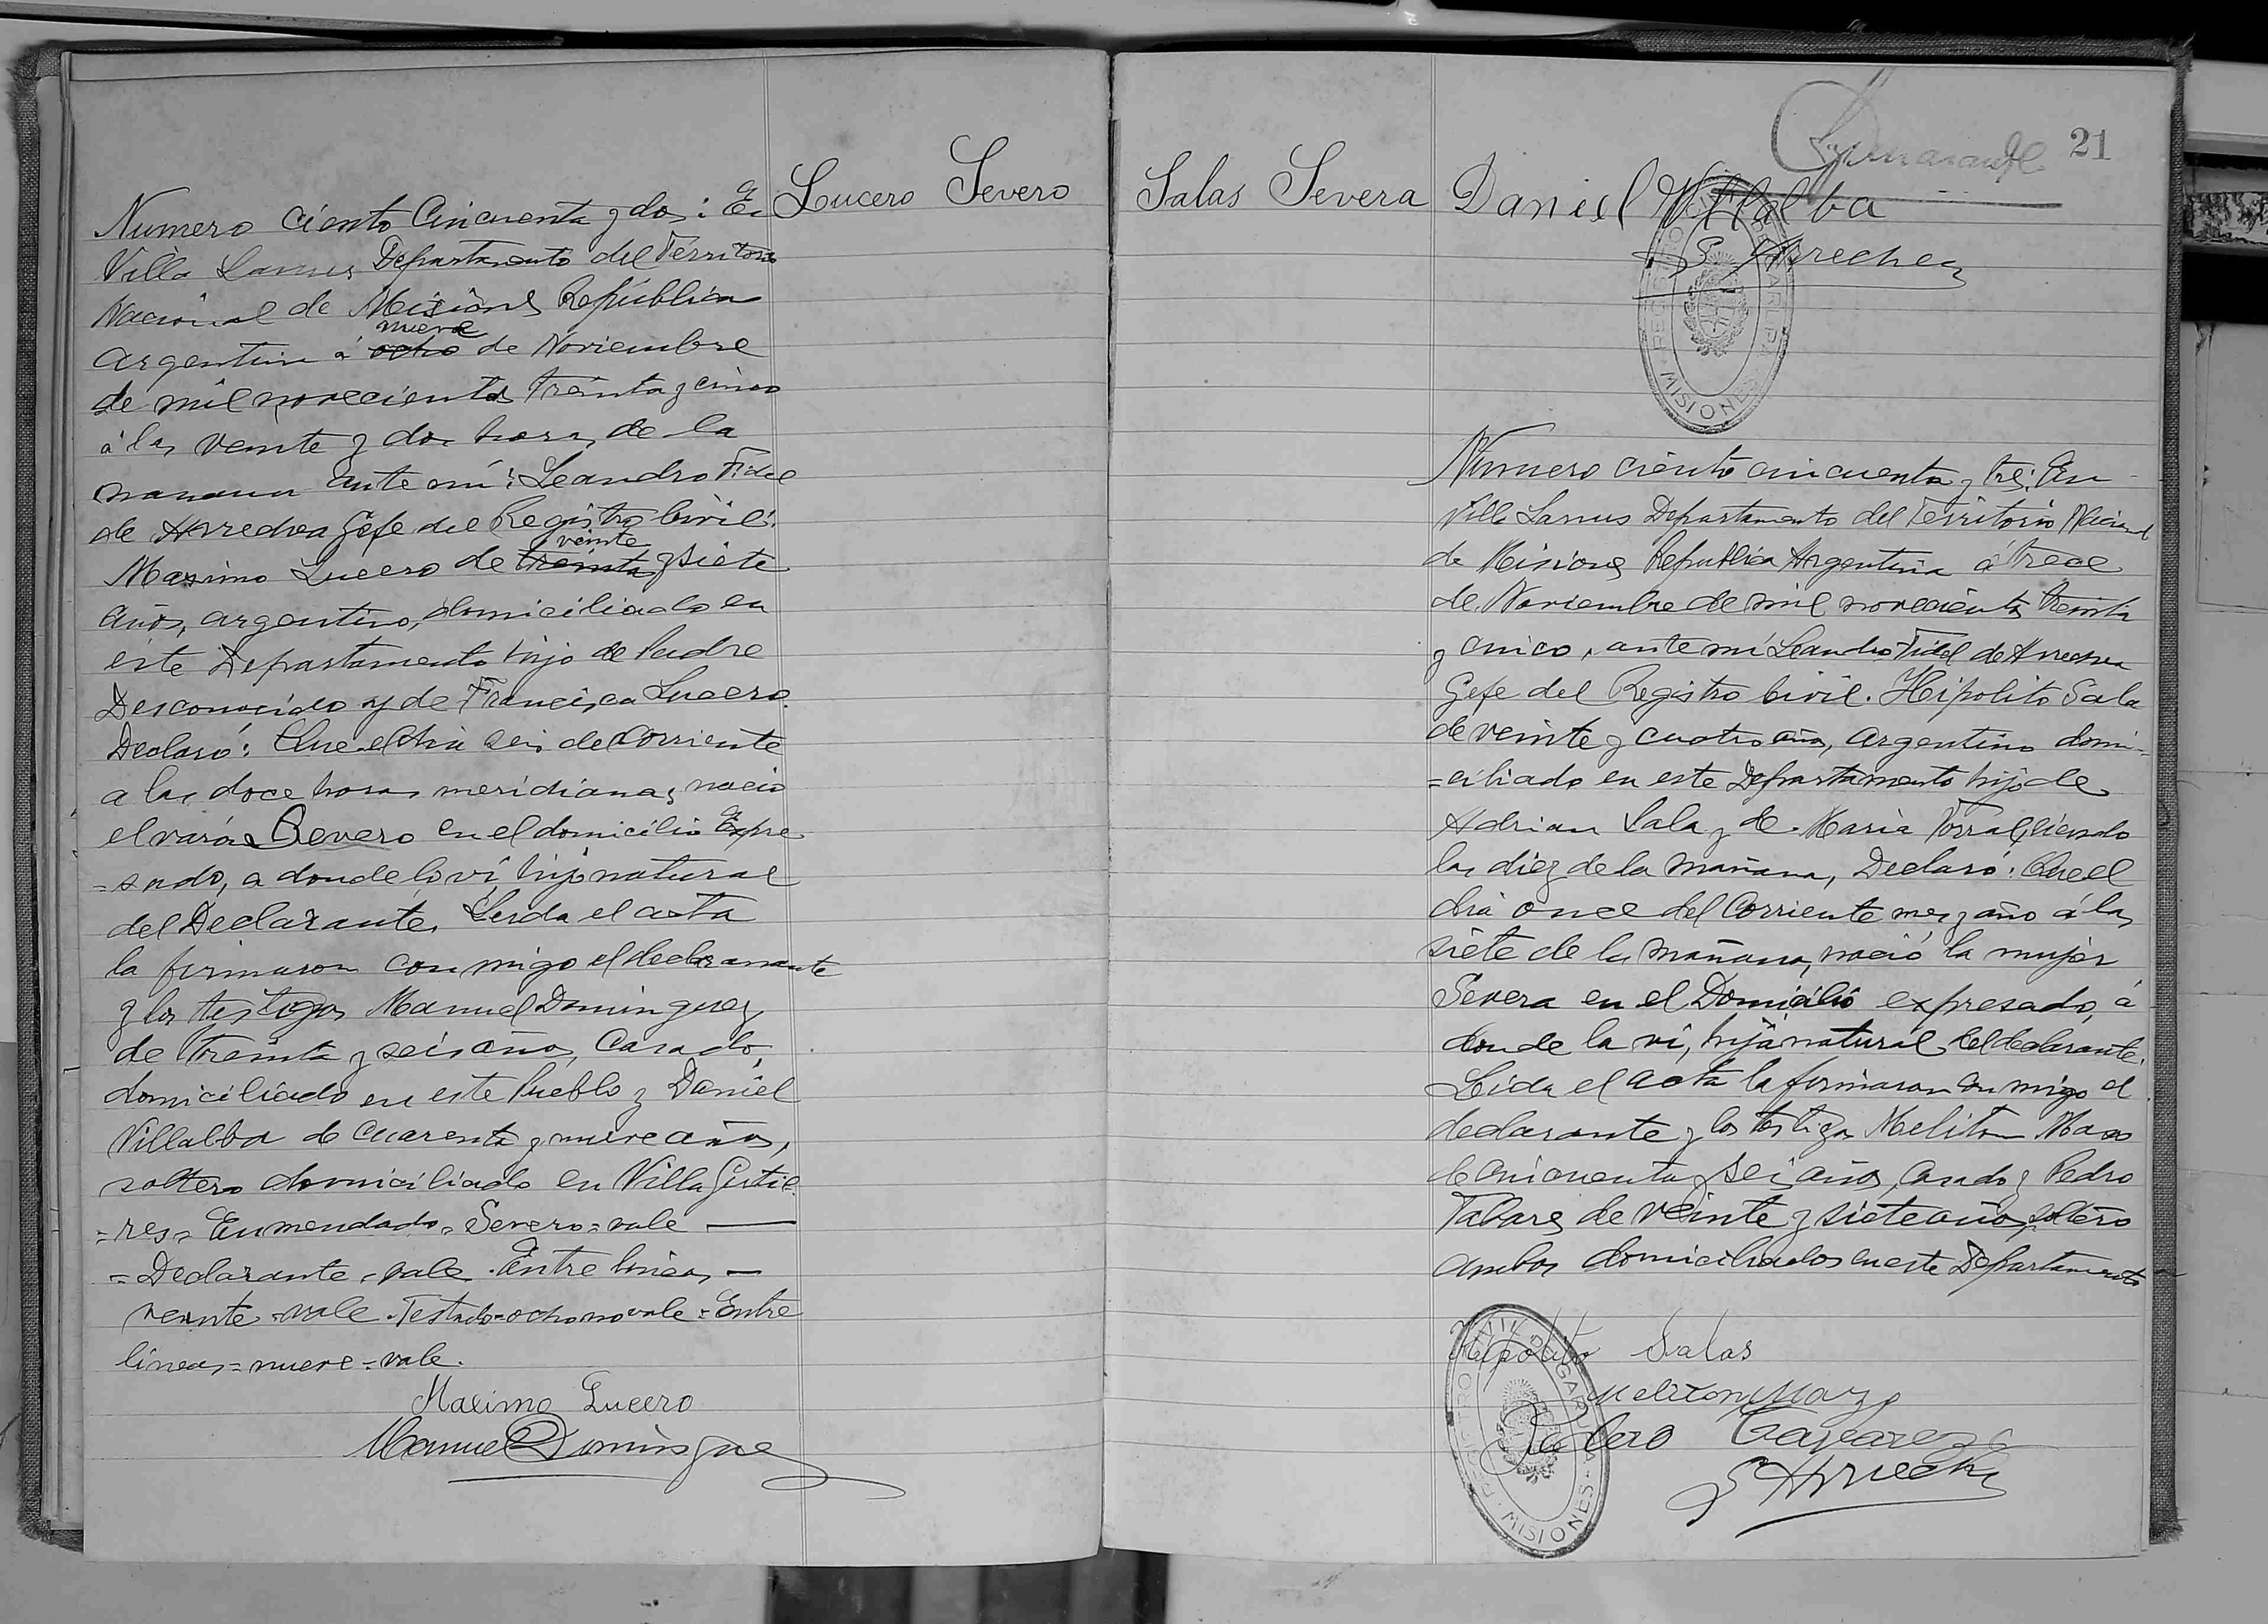 Lucero Severo
Numero ciento Cincuenta y dos: En
Villa Lanus Departamento del Territorio
Nacional de Misiones República
nueve
Argentina á ocho de Noviembre
de mil novecientos treinta y cinco
á las veinte y dos horas de la
manana ante mi: Leandro Fidel
de Arrechea Gefe del Registro Civil.
veinte
Maximo Lucero de treinta y siete
años, argentino, domiciliado en
este Departamento hijo de Padre
Desconocido y de Francisca Lucero.
Declaró: Que el dia seis del Corriente
a las doce horas meridianas nacio
el varón Severo en el domicilio Expre
=sado, a donde lo ví hijo natural
del Declarante. Leida el acta
la firmaron conmigo el declarante
y los testigos Manuel Dominguez
de treinta y seis años, Casado,
domiciliado en este Pueblo y Daniel
Villalba de cuarenta y nueve años,
soltero domiciliado en Villa Gutie
=res= Enmendado= Severo= vale
=Declarante= vale. Entre lineas
veinte=vale. Testado=ocho no vale= Entre
lineas=nueve=vale.
Maximo Lucero
Manuel Dominguez
21
Salas Severa
Daniel Villalba
L Arrechea
REGISTRO CIVIL GARUPA
MISIONES
Numero ciento cincuenta y tres: En
Villa Lanus Departamento del Territorio Nacional
de Misiones República Argentina á trece
de Noviembre de mil novecientos treinta
y cinco, ante mí Leandro Fidel de Arrechea
Gefe del Registro Civil. Hipolito Sala
de veinte y cuatro años, argentino domi=
=ciliado en este Departamento hijo de
Adrian Sala y de Maria Torral, siendo
las diez de la mañana, Declaró: Que el
dia once del Corriente mes y año á las
siete de la mañana, nació la mujer
Severa en el Domicilio expresado, á
donde la ví, hija natural del declarante.
Leida el acta la firmaron conmigo el
declarante y los testigos Meliton Mazo
de cincuenta y seis años, casado y Pedro
Tabares de veinte y siete años, soltero
ambos domiciliados en este Departamento
Hipolito Salas
Meliton Mazo
Pedro Tavarez
L Arrechea
REGISTRO CIVIL GARUPA
MISIONES